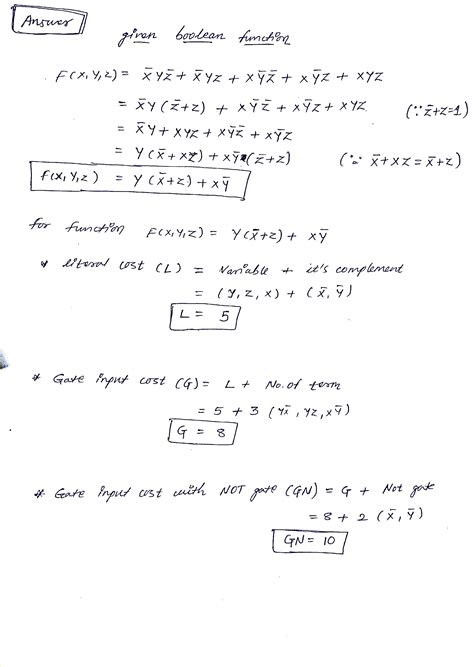 Answer
given boolean function
F(X,Y,Z) = X̄YZ̄ + X̄YZ + XȲZ̄ + XȲZ + XYZ
= X̄Y(Z̄+Z) + XȲZ̄ + XȲZ + XYZ (∵ Z̄+Z=1)
= X̄Y + XYZ + XȲZ̄ + XȲZ
= Y(X̄+XZ) + XȲ(Z̄+Z) (∵ X̄+XZ = X̄+Z)
F(X,Y,Z) = Y(X̄+Z) + XȲ
for function F(X,Y,Z) = Y(X̄+Z) + XȲ
* literal cost (L) = Variable + it's complement
= (Y, Z, X) + (X̄, Ȳ)
L = 5
* Gate input cost (G) = L + No. of term
= 5 + 3 (YX̄, YZ, XȲ)
G = 8
* Gate input cost with NOT gate (GN) = G + Not gate
= 8 + 2 (X̄, Ȳ)
GN = 10